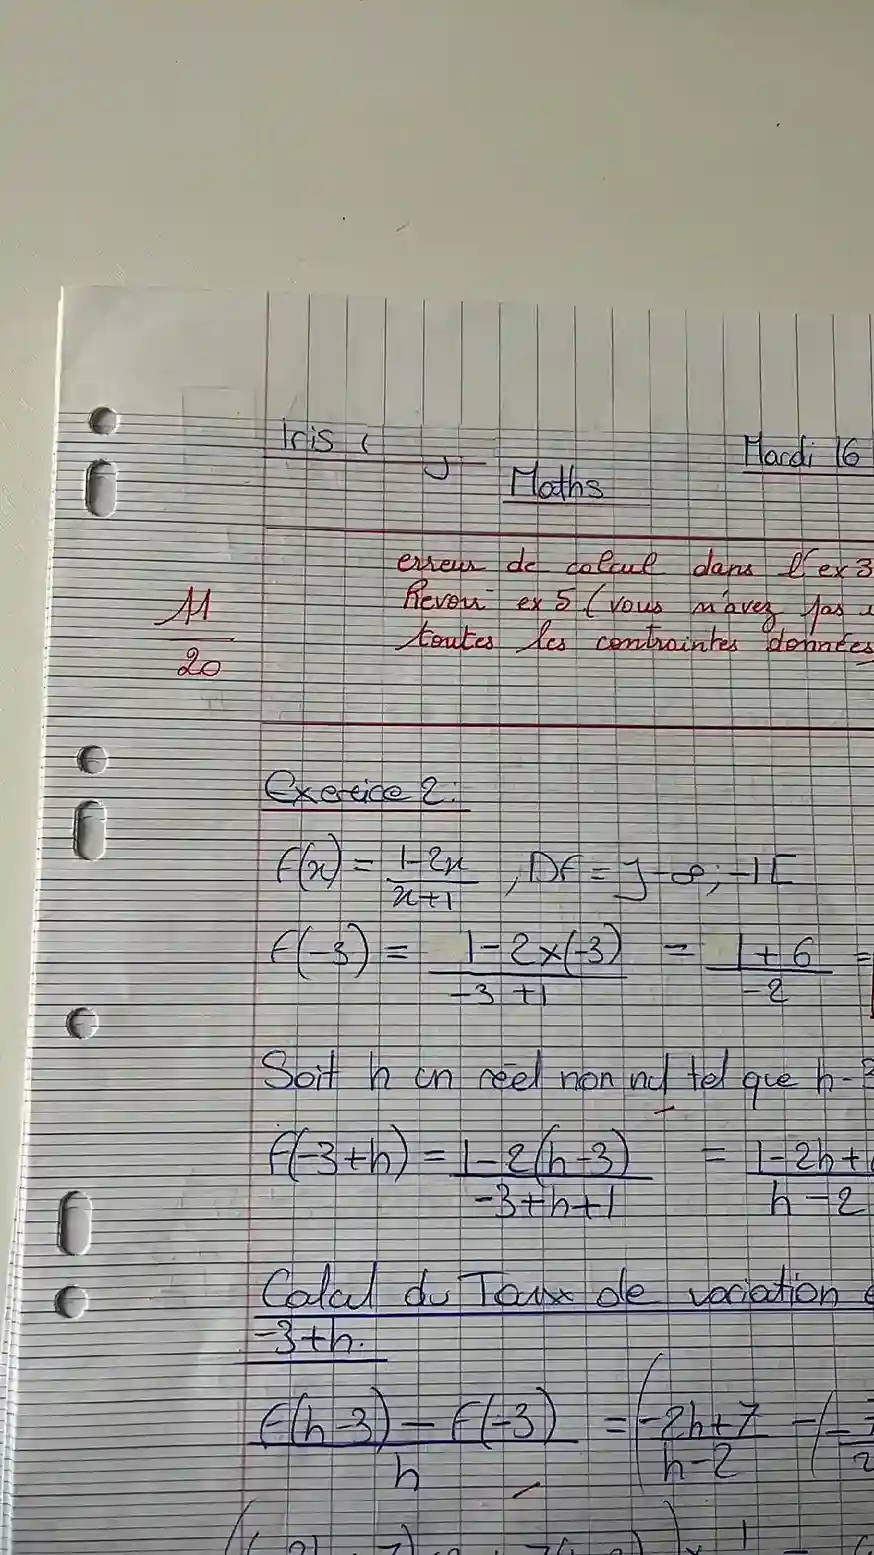 Iris
Mardi 16
Maths
11/20
erreur de calcul dans l'ex 3
Revoir ex 5 (vous n'avez pas
toutes les contraintes données
Exercice 2:
f(x) = (1-2x)/(x+1) , Df = ]-∞; -1[
f(-3) = (1-2×(-3))/(-3+1) = (1+6)/(-2) =
Soit h un réel non nul tel que h-3
f(-3+h) = (1-2(h-3))/(-3+h+1) = (1-2h+)/(h-2)
Calcul du Taux de variation
-3+h.
(f(h-3) - f(-3))/h = ((-2h+7)/(h-2) - (-7/2